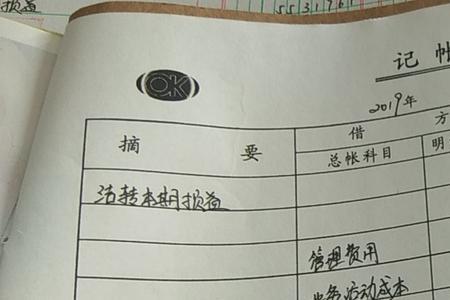 损益
553176
OK
记帐
2019年
摘要
借方
总帐科目
明
结转本期损益
管理费用
业务活动成本